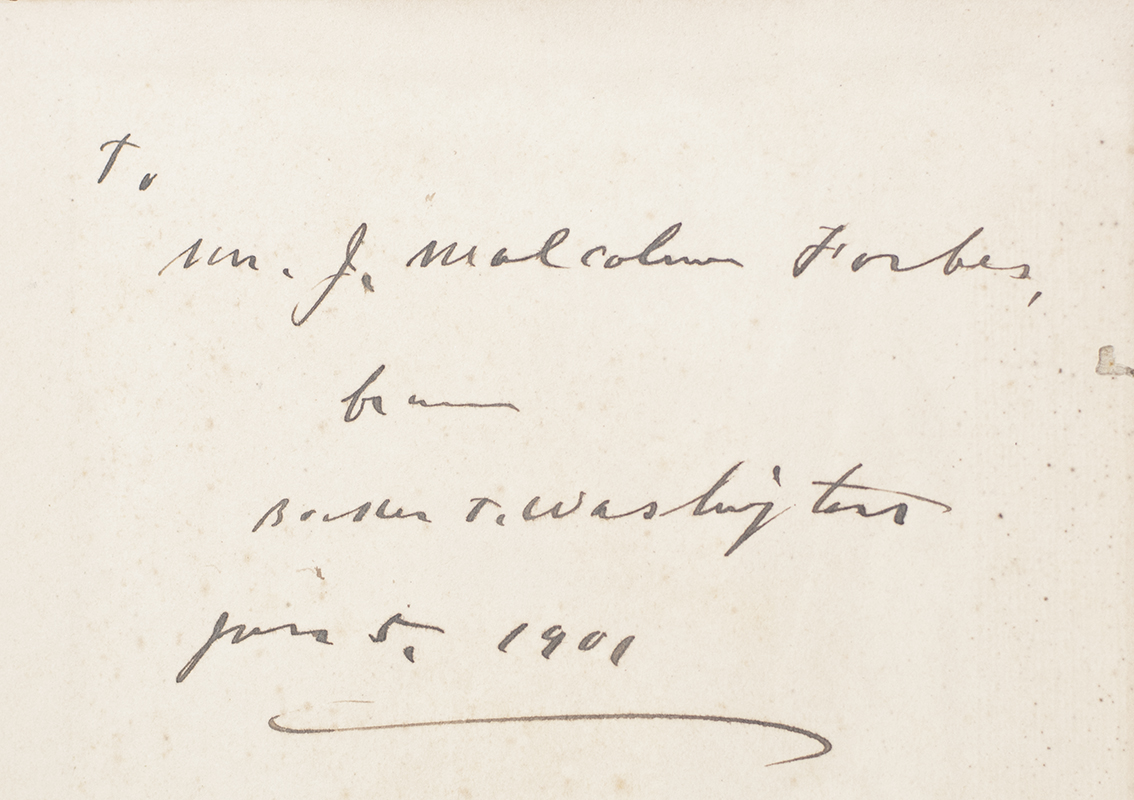 To
Mr. J. Malcolm Forbes,
from
Booker T. Washington
June 5, 1901